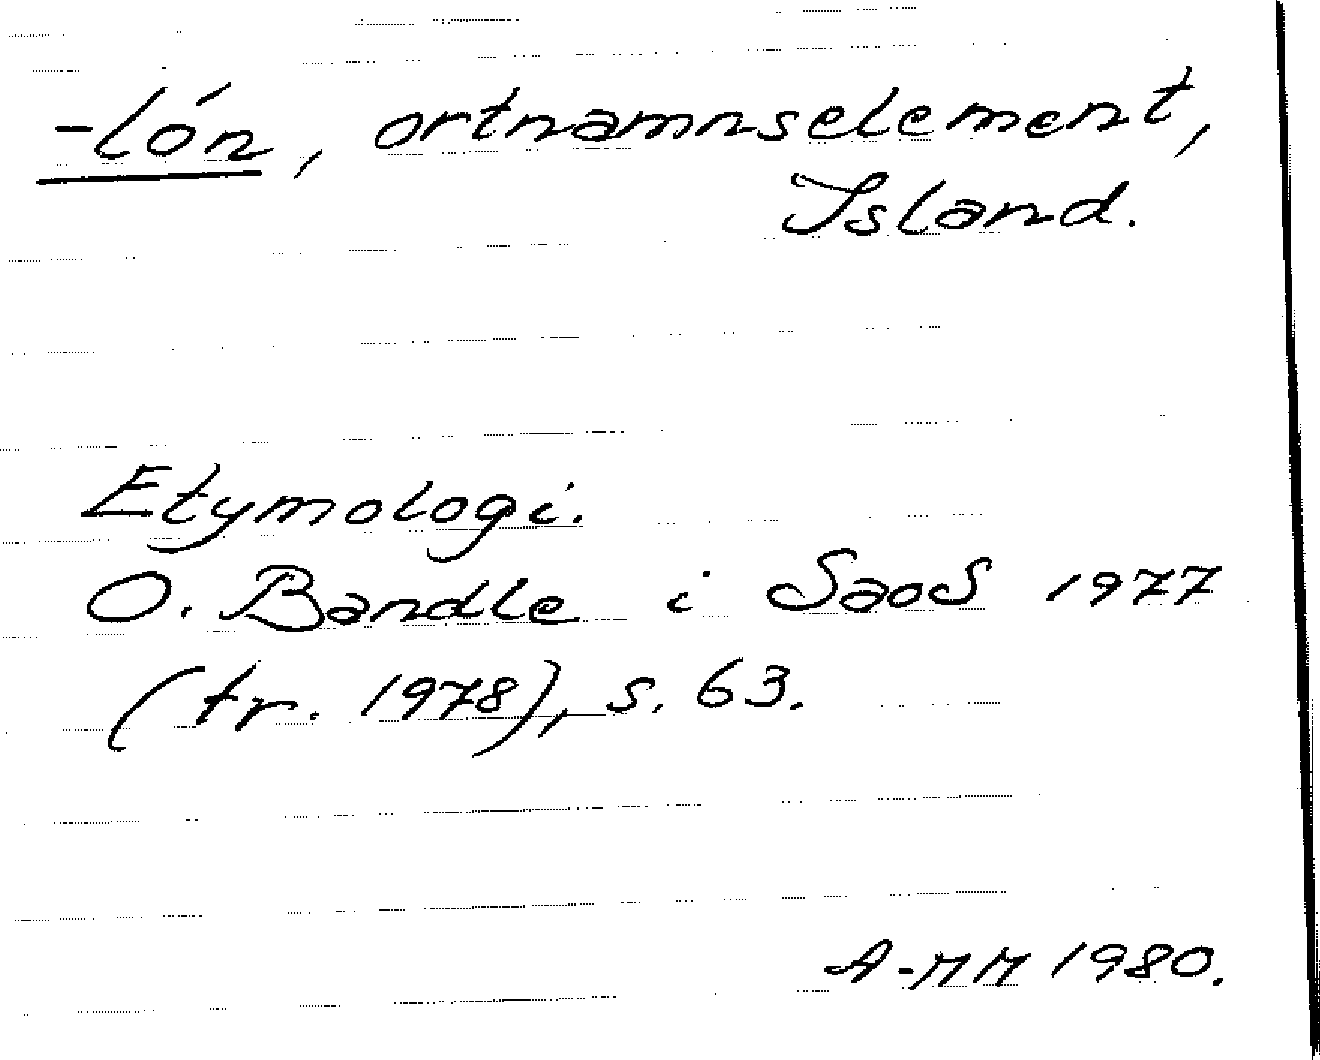 -lón, ortnamnselement,
Island.
Etymologi.
O. Bandle i SaoS 1977
(tr. 1978), s. 63.
A-MM 1980.